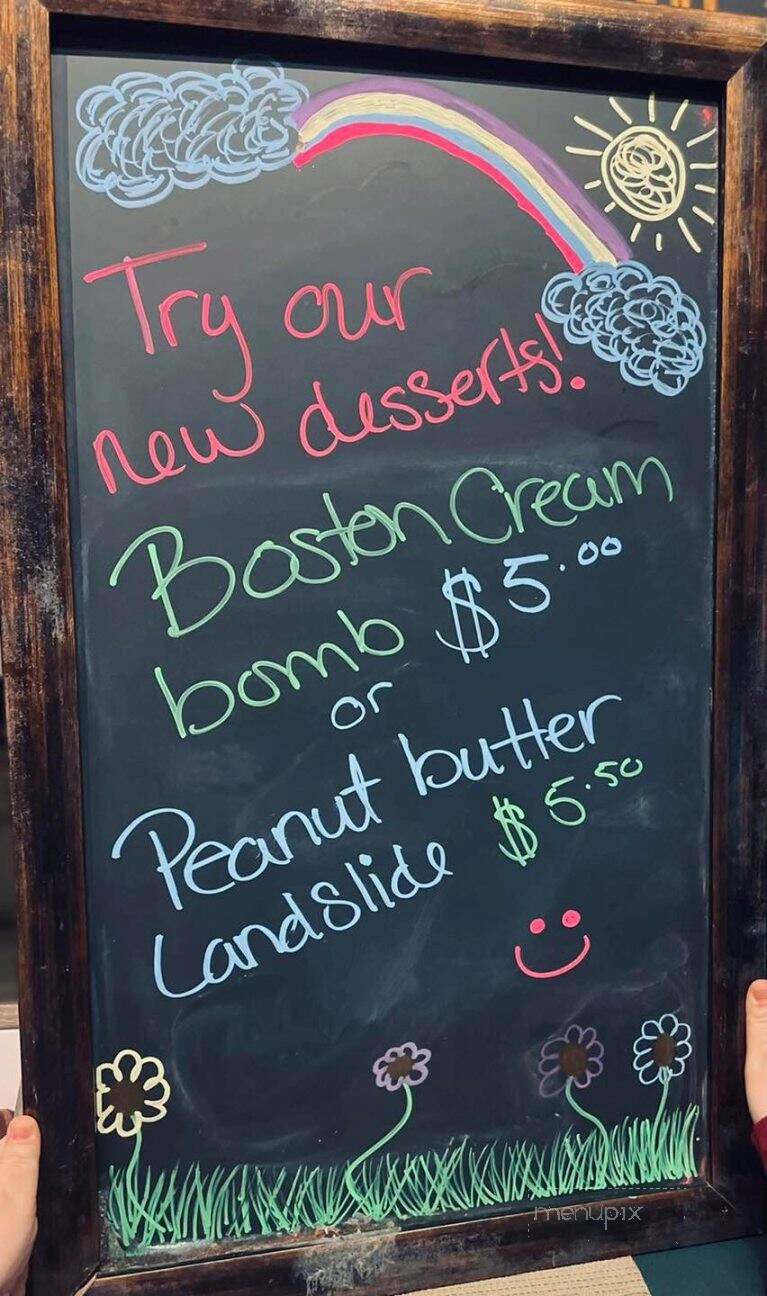 Try our
new desserts!
Boston Cream
bomb $5.00
or
Peanut butter
Landslide $5.50
menupix